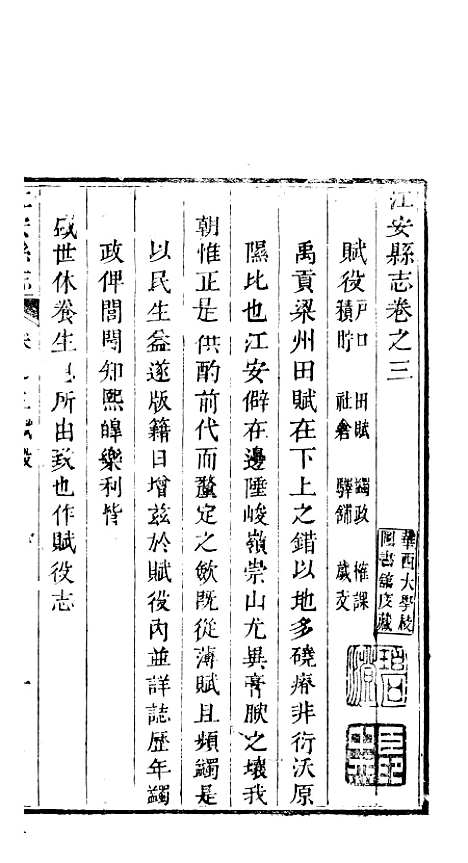 江安縣志卷之三
賦役 戶口 田賦 蠲政 榷課
積貯 社倉 驛鋪 歲支
禹貢梁州田賦在下上之錯以地多磽瘠非衍沃原
隰比也江安僻在邊陲峻嶺崇山尤異膏腴之壤我
朝惟正是供酌前代而釐定之斂既從薄賦且頻蠲是
以民生益遂版籍日增茲於賦役內並詳誌歷年蠲
政俾閭閻知熙皥樂利皆
盛世休養生息所由致也作賦役志
江安縣志 卷之三 賦役
華西大學校
圖書館庋藏